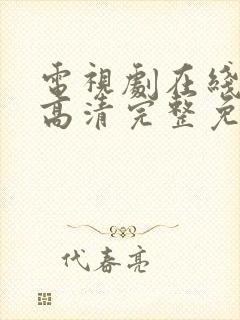 電視劇在綫
高清完整免
代春亮